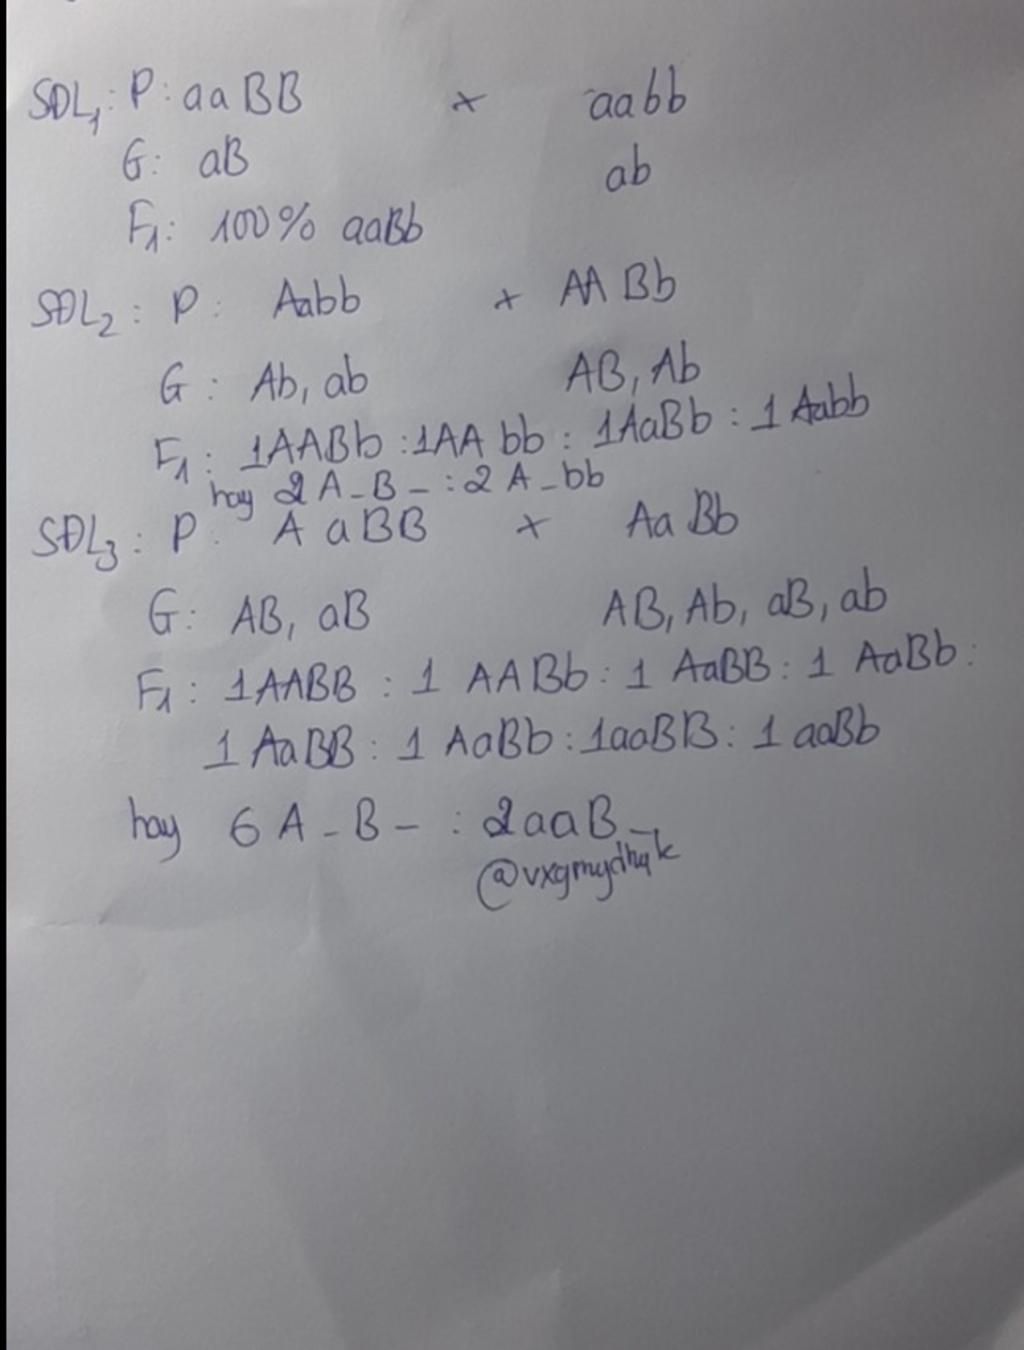 SĐL1: P: aaBB x aabb
G: aB ab
F1: 100% aaBb
SĐL2: P: Aabb x AABb
G: Ab, ab AB, Ab
F1: 1AABb : 1AAbb : 1AaBb : 1 Aabb
hay 2 A-B- : 2 A-bb
SĐL3: P: AaBB x AaBb
G: AB, aB AB, Ab, aB, ab
F1: 1AABB : 1 AABb : 1 AaBB : 1 AaBb :
1 AaBB : 1 AaBb : 1aaBB : 1 aaBb
hay 6 A-B- : 2aaB-
@vxgmydhqk